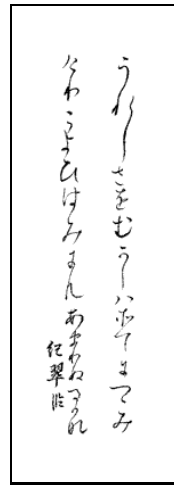 うれしさをむかしハそてにつゝみ
けりこよひはみにもあまりぬるかな
紀翠臨